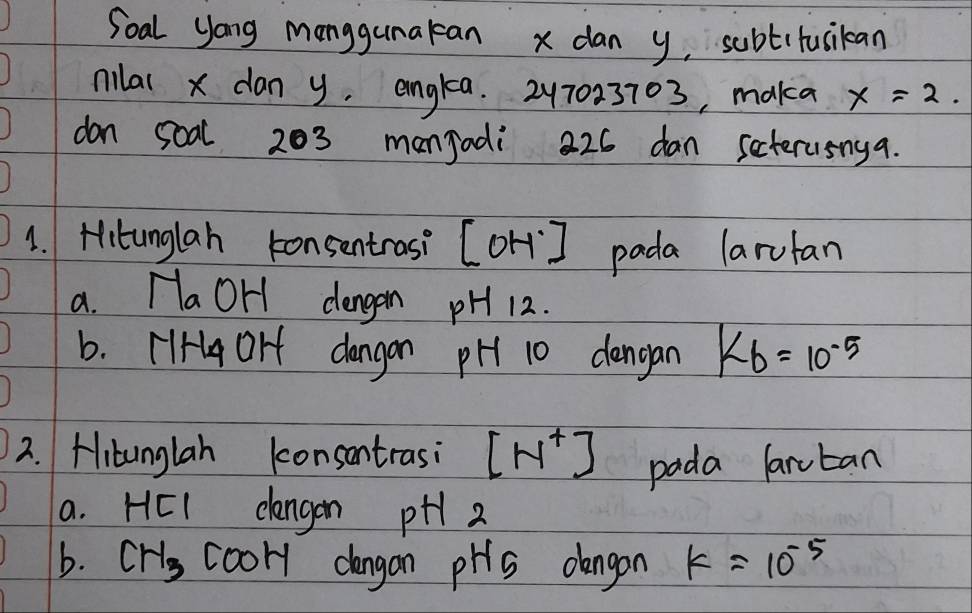 Soal yang menggunakan x dan y, subtitusikan
nilai x dan y. angka. 247023703, maka x = 2.
dan soal 203 menjadi 226 dan seterusnya.
1. Hitunglah konsentrasi [OH⁻] pada larutan
a. NaOH dengan pH 12.
b. NH4OH dengan pH 10 dengan Kb = 10⁻⁵
2. Hitunglah konsentrasi [H⁺] pada larutan
a. HCl dengan pH 2
b. CH₃COOH dengan pH 5 dengan K = 10⁻⁵